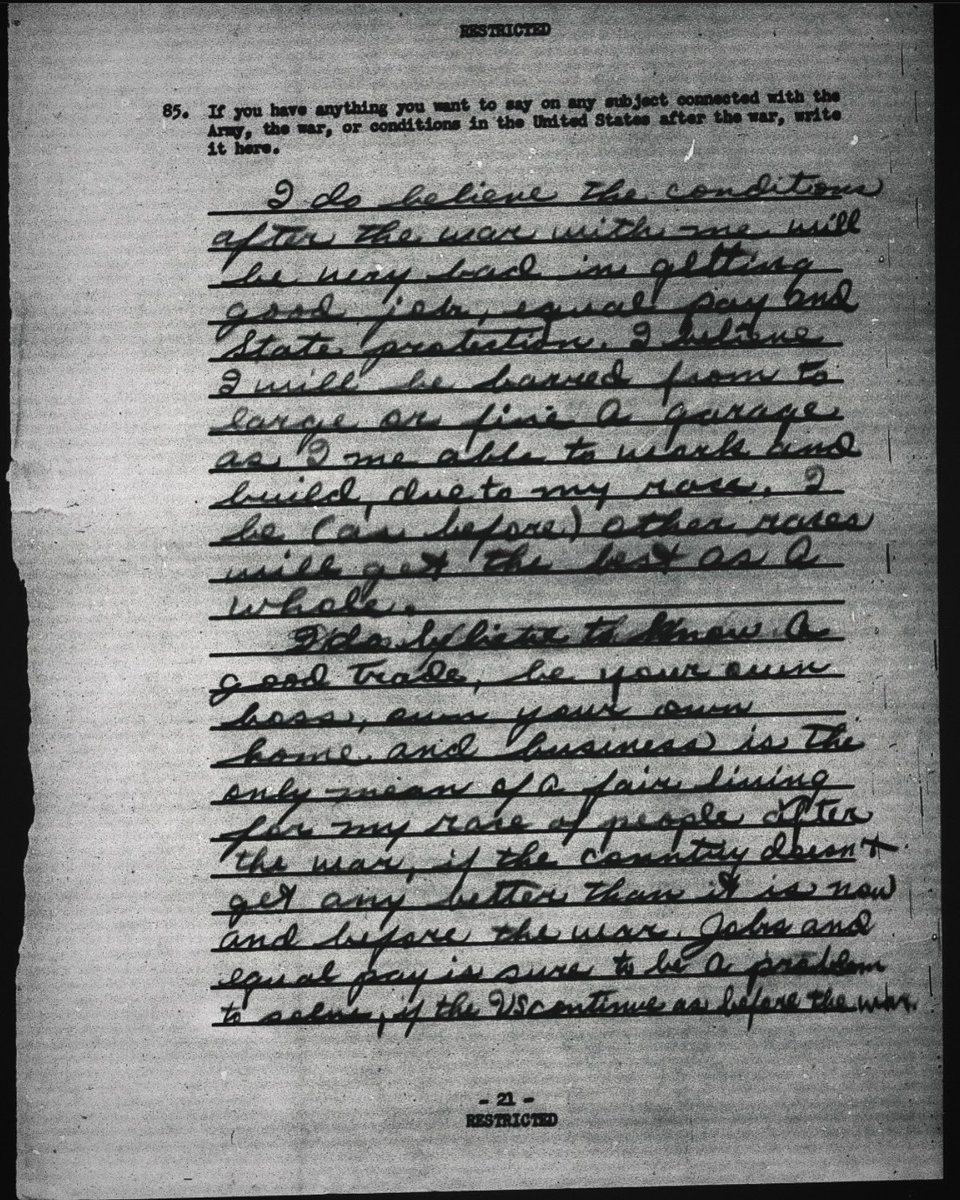 RESTRICTED
85. If you have anything you want to say on any subject connected with the
Army, the war, or conditions in the United States after the war, write
it here.
I do believe the conditions
after the war with me will
be very bad in getting
good job, equal pay and
State protection. I believe
I will be barred from to
large or fine a garage
as I me able to work and
build, due to my race. I
be (as before) other races
will get the best as a
whole.
I do believe to know a
good trade, be your own
boss, own your own
home and business is the
only mean of a fair living
for my race of people after
the war, if the country doesn't
get any better than it is now
and before the war. Jobs and
equal pay is sure to be a problem
to solve, if the US continue as before the war.
- 21 -
RESTRICTED